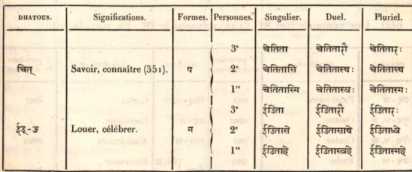 DHATOUS. Significations. Formes. Personnes. Singulier. Duel. Pluriel.
3ᵉ चेतिता चेतितारौ चेतितारः
चित् Savoir, connaître (351). प 2ᵉ चेतितासि चेतितास्थः चेतितास्थ
1ʳᵉ चेतितास्मि चेतितास्वः चेतितास्मः
3ᵉ ईडिता ईडितारौ ईडितारः
ईड्-ङ Louer, célébrer. म 2ᵉ ईडितासे ईडितासाथे ईडिताध्वे
1ʳᵉ ईडिताहे ईडितास्वहे ईडितास्महे